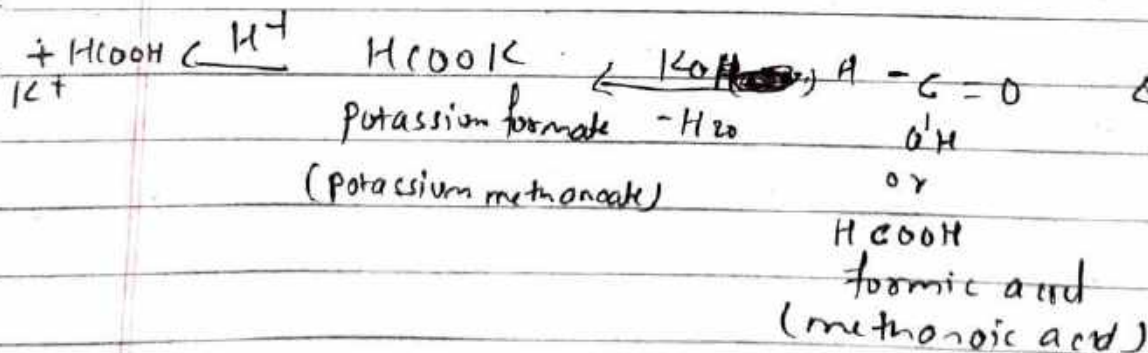 + HCOOH ← H+ HCOOK ← KOH H - C = O ←
K+
potassium formate - H2O O'H
(potassium methonoate) or
HCOOH
formic acid
(methonoic acid)